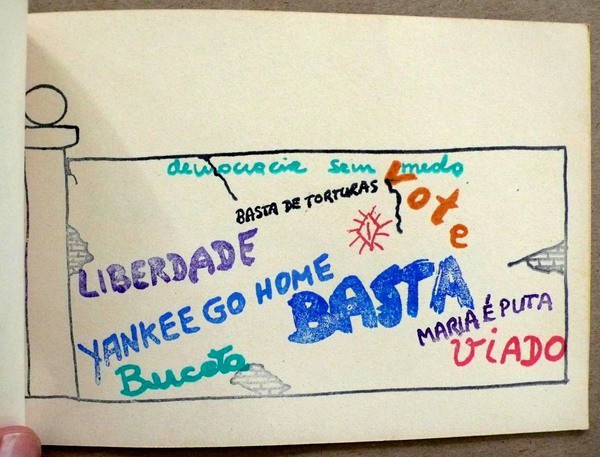 democracia sem medo
BASTA DE TORTURAS
Vote
LIBERDADE
YANKEE GO HOME
BASTA
MARIA É PUTA
ViADO
Buceta